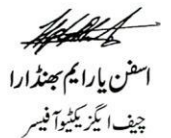 اسفن یار ایم بھنڈارا
چیف ایگزیکٹیو آفیسر